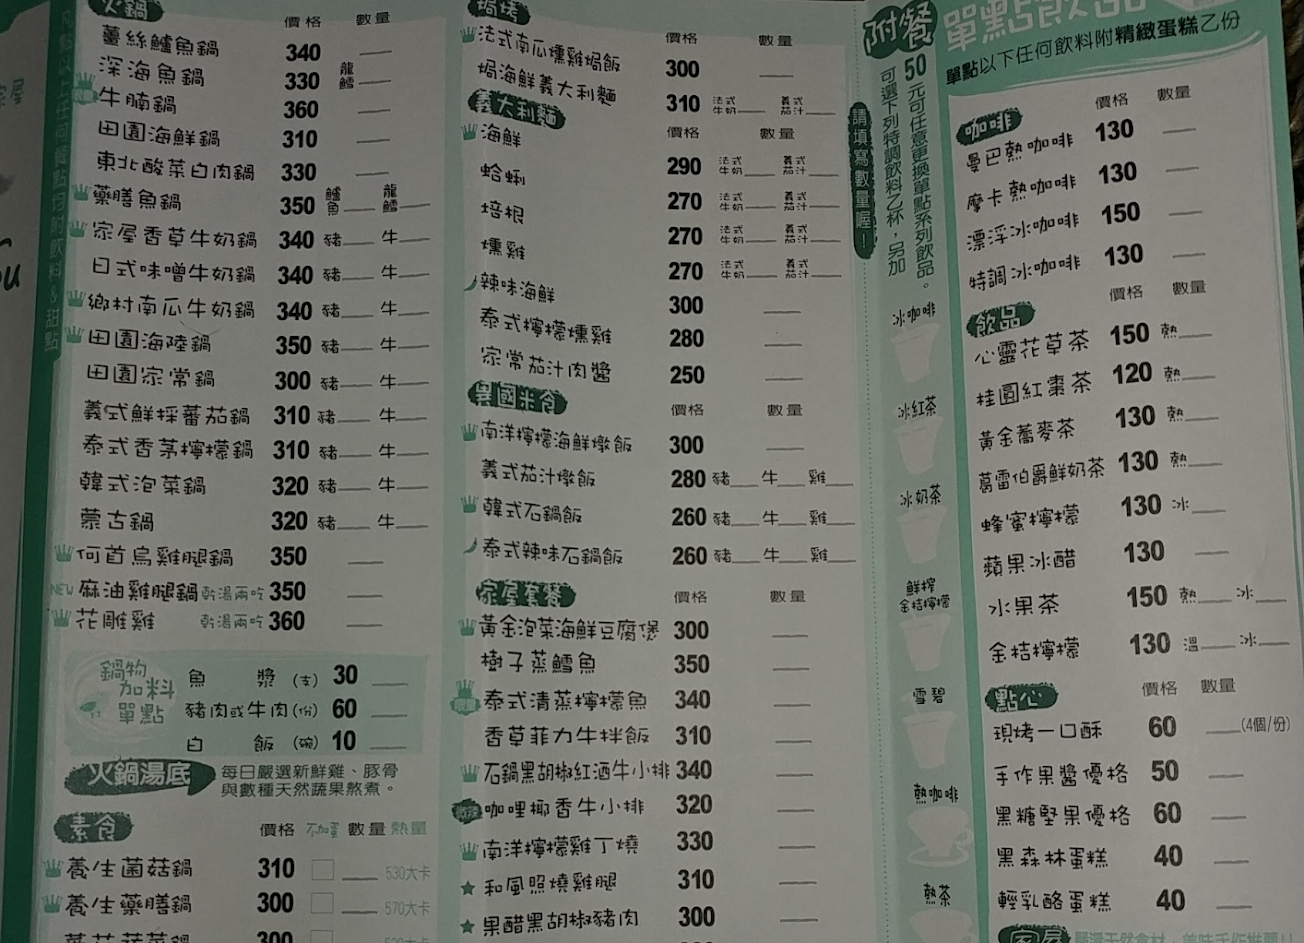 火鍋 價格 數量
薑絲鱸魚鍋 340
深海魚鍋 330 龍鱈
牛腩鍋 360
田園海鮮鍋 310
東北酸菜白肉鍋 330
藥膳魚鍋 350 鱸魚 龍鱈
家屋香草牛奶鍋 340 豬 牛
日式味噌牛奶鍋 340 豬 牛
鄉村南瓜牛奶鍋 340 豬 牛
田園海陸鍋 350 豬 牛
田園家常鍋 300 豬 牛
義式鮮採蕃茄鍋 310 豬 牛
泰式香茅檸檬鍋 310 豬 牛
韓式泡菜鍋 320 豬 牛
蒙古鍋 320 豬 牛
何首烏雞腿鍋 350
NEW 麻油雞腿鍋 乾湯兩吃 350
花雕雞 乾湯兩吃 360
鍋物加料單點
魚漿(支) 30
豬肉或牛肉(份) 60
白飯(碗) 10
火鍋湯底 每日嚴選新鮮雞、豚骨
與數種天然蔬果熬煮。
素食 價格 不加蛋 數量 熱量
養生菌菇鍋 310 530大卡
養生藥膳鍋 300 570大卡
焗烤 價格 數量
法式南瓜燻雞焗飯 300
焗海鮮義大利麵 310 法式牛奶 義式茄汁
義大利麵 價格 數量
海鮮 290 法式牛奶 義式茄汁
蛤蜊 270 法式牛奶 義式茄汁
培根 270 法式牛奶 義式茄汁
燻雞 270 法式牛奶 義式茄汁
辣味海鮮 300
泰式檸檬燻雞 280
家常茄汁肉醬 250
異國米食 價格 數量
南洋檸檬海鮮燉飯 300
義式茄汁燉飯 280 豬 牛 雞
韓式石鍋飯 260 豬 牛 雞
泰式辣味石鍋飯 260 豬 牛 雞
家屋套餐 價格 數量
黃金泡菜海鮮豆腐煲 300
樹子蒸鱈魚 350
泰式清蒸檸檬魚 340
香草菲力牛拌飯 310
石鍋黑胡椒紅酒牛小排 340
咖哩椰香牛小排 320
南洋檸檬雞丁燒 330
和風照燒雞腿 310
果醋黑胡椒豬肉 300
附餐
可選下列特調飲料乙杯，另加
50元可任意更換單點系列飲品。
請填寫數量喔！
冰咖啡
冰紅茶
冰奶茶
鮮榨
金桔檸檬
雪碧
熱咖啡
熱茶
單點飲品
單點以下任何飲料附精緻蛋糕乙份
咖啡 價格 數量
曼巴熱咖啡 130
摩卡熱咖啡 130
漂浮冰咖啡 150
特調冰咖啡 130
飲品 價格 數量
心靈花草茶 150 熱
桂圓紅棗茶 120 熱
黃金蕎麥茶 130 熱
葛雷伯爵鮮奶茶 130 熱
蜂蜜檸檬 130 冰
蘋果冰醋 130
水果茶 150 熱 冰
金桔檸檬 130 溫 冰
點心 價格 數量
現烤一口酥 60 (4個/份)
手作果醬優格 50
黑糖堅果優格 60
黑森林蛋糕 40
輕乳酪蛋糕 40